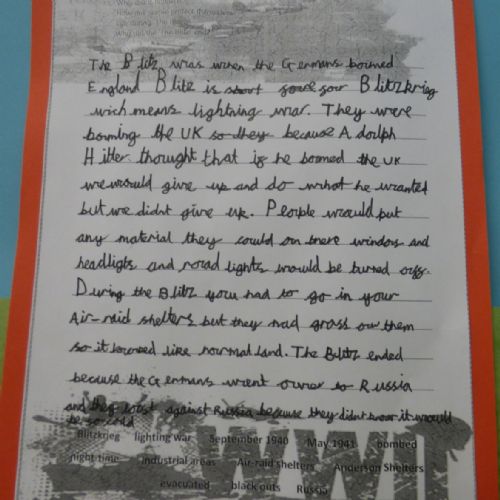 Why did it happen?
How did people protect themselves
The Blitz was when the Germans bomed
England Blitz is short foure for Blitzkrieg
wich means lightning war. They were
boming the UK so they because Adolph
Hitler thought that if he bomed the UK
we would give up and do what he wanted
but we didnt give up. People would put
any material they could on there windows and
headligts and road lights would be turned off.
During the Blitz you had to go in your
Air-raid shelters but they had grass on them
so it looked like normal land. The Blitz ended
because the Germans went over to Russia
and they lost against Russia because they didnt know it would
be so cold
WWII
Blitzkrieg lighting war September 1940 May 1941 bombed
night-time industrial areas Air-raid shelters Anderson Shelters
evacuated black outs Russia